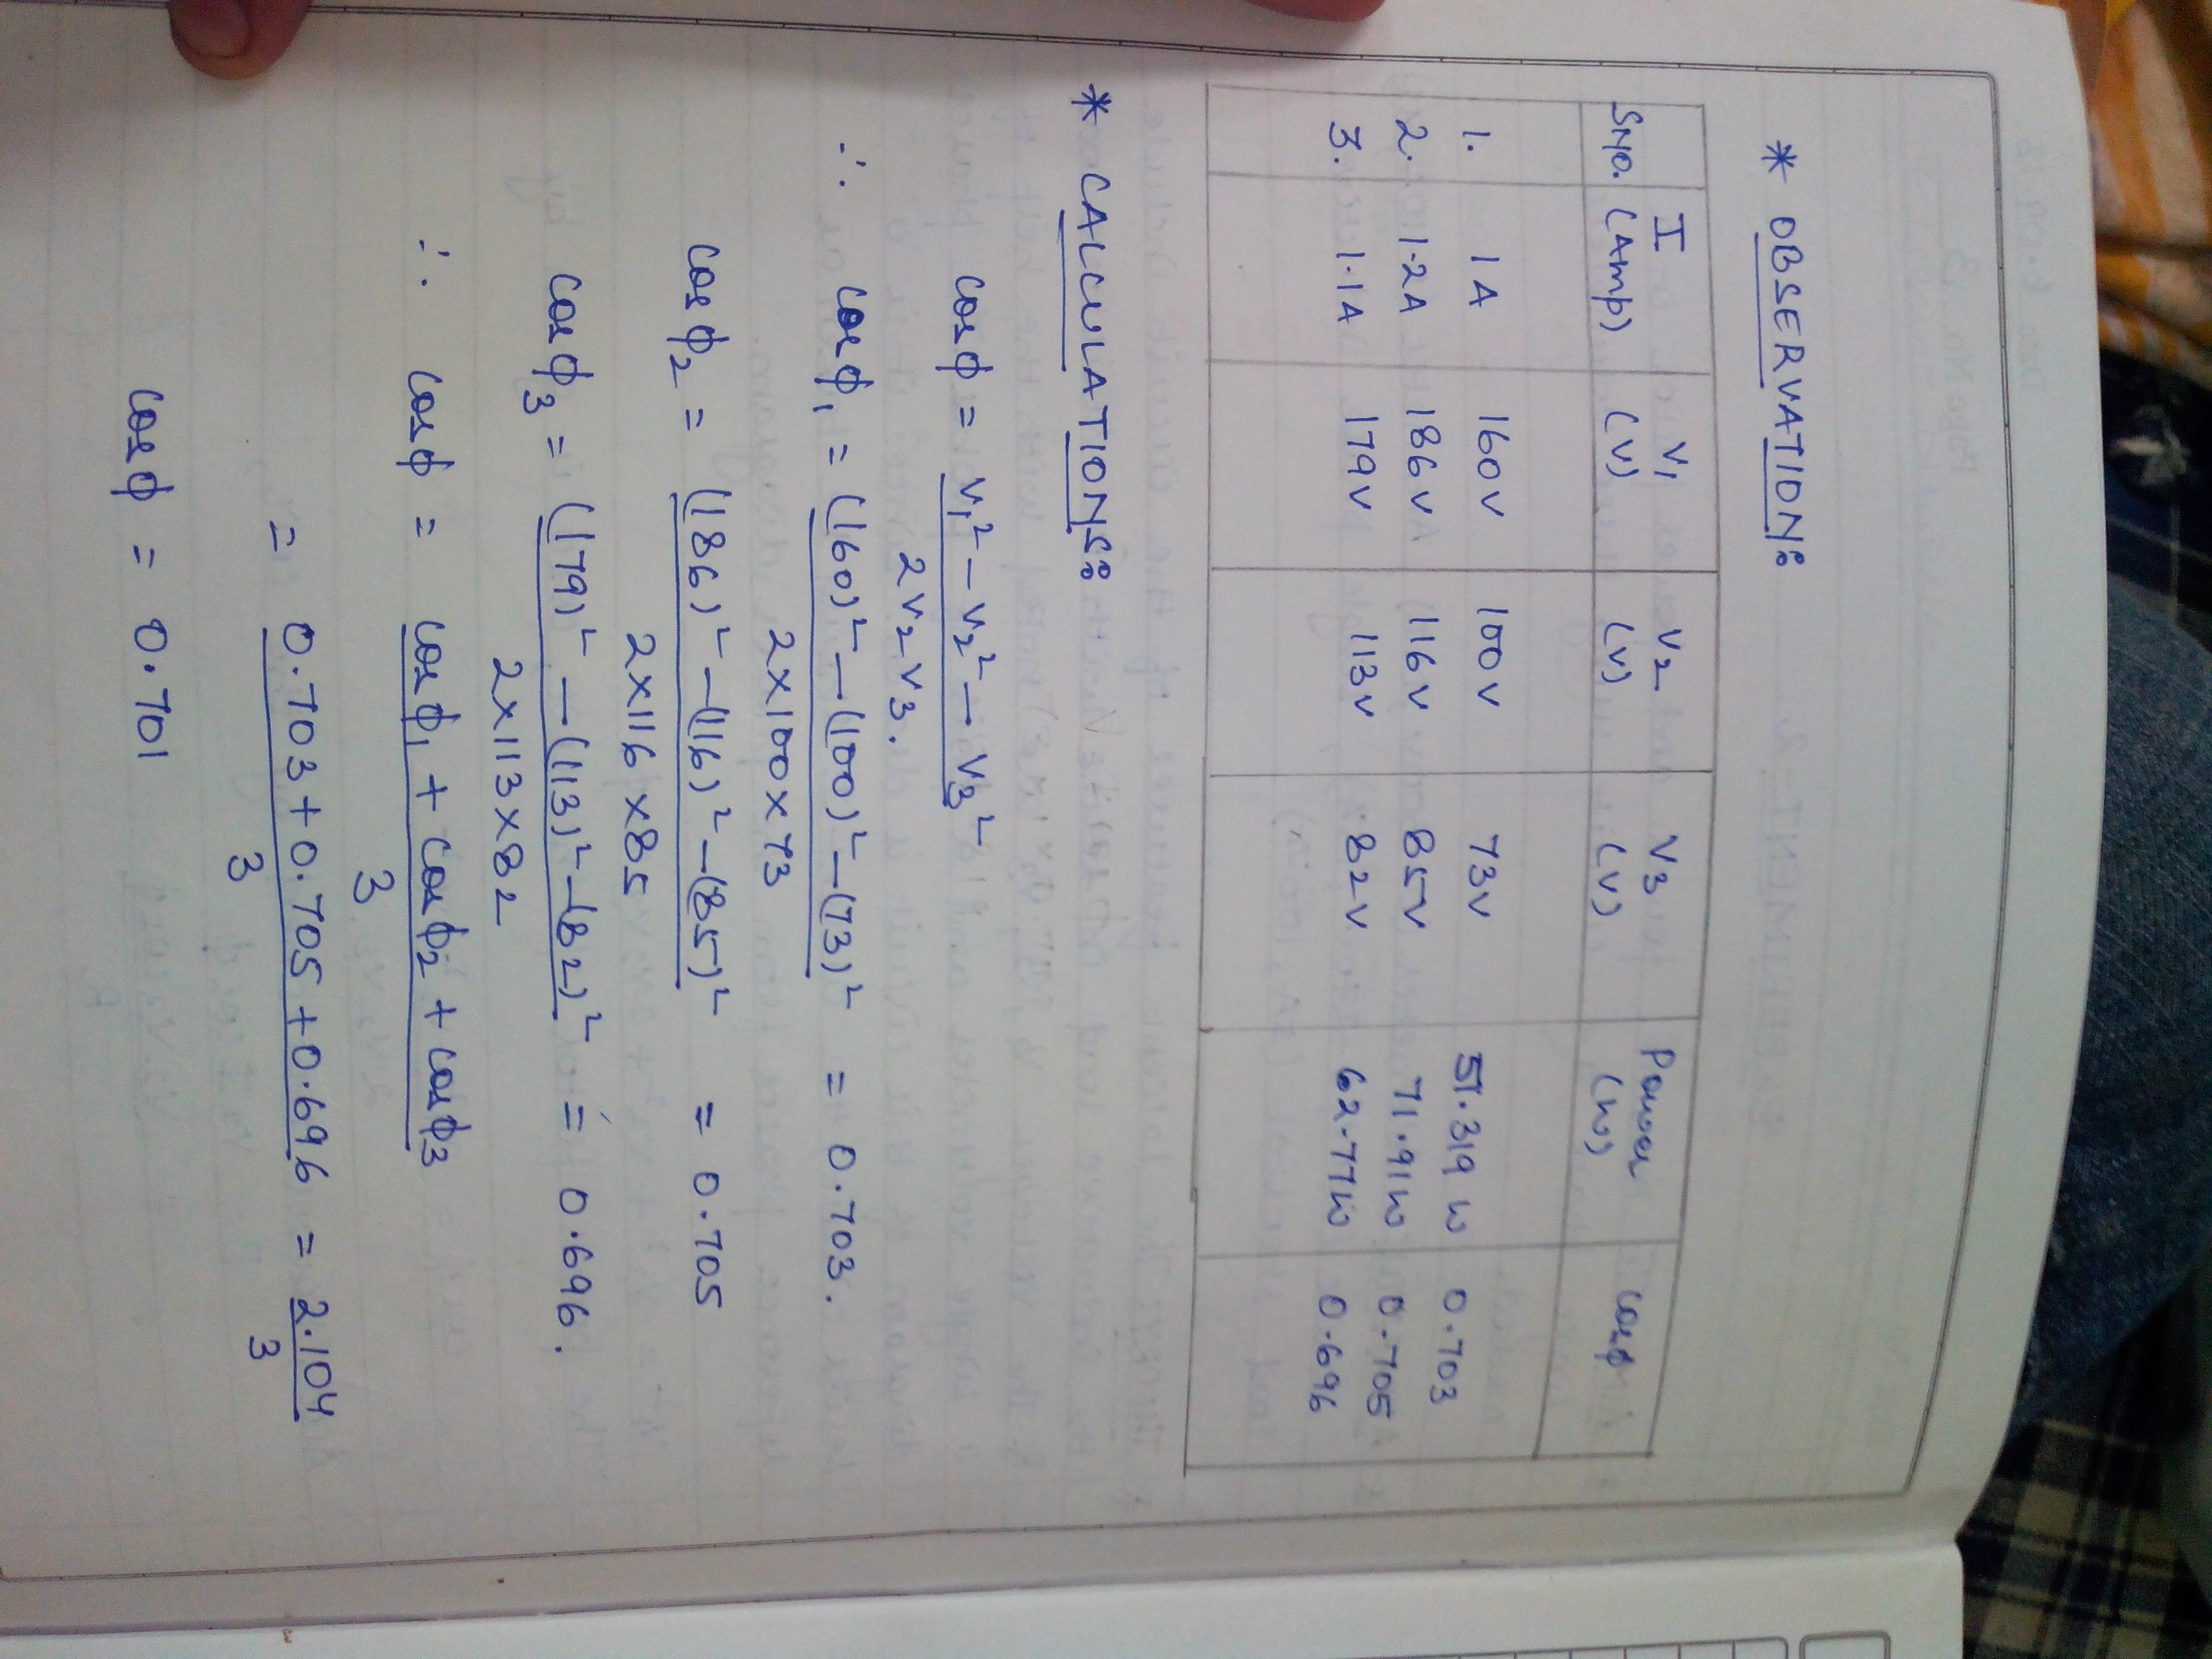 * OBSERVATION:
S.No. I (Amp) V₁ (V) V₂ (V) V₃ (V) Power (W) cosϕ
1. 1A 160V 100V 73V 51.319 W 0.703
2. 1.2A 186V 116V 85V 71.91W 0.705
3. 1.1A 179V 113V 82V 62.77W 0.696
* CALCULATIONS:
cosϕ = V₁² – V₂² – V₃² / 2V₂V₃.
∴ cosϕ₁ = (160)² – (100)² – (73)² / 2×100×73 = 0.703.
cosϕ₂ = (186)² – (116)² – (85)² / 2×116×85 = 0.705
cosϕ₃ = (179)² – (113)² – (82)² / 2×113×82 = 0.696.
∴ cosϕ = cosϕ₁ + cosϕ₂ + cosϕ₃ / 3
= 0.703 + 0.705 + 0.696 / 3 = 2.104 / 3
cosϕ = 0.701